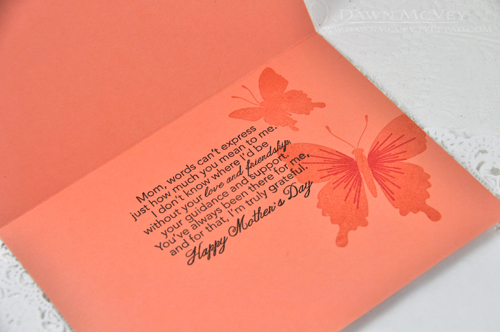 DAWN MCVEY
Mom, words can't express
just how much you mean to me.
I don't know where I'd be
without your love and friendship,
your guidance and support.
You've always been there for me,
and for that, I'm truly grateful.
Happy Mother's Day